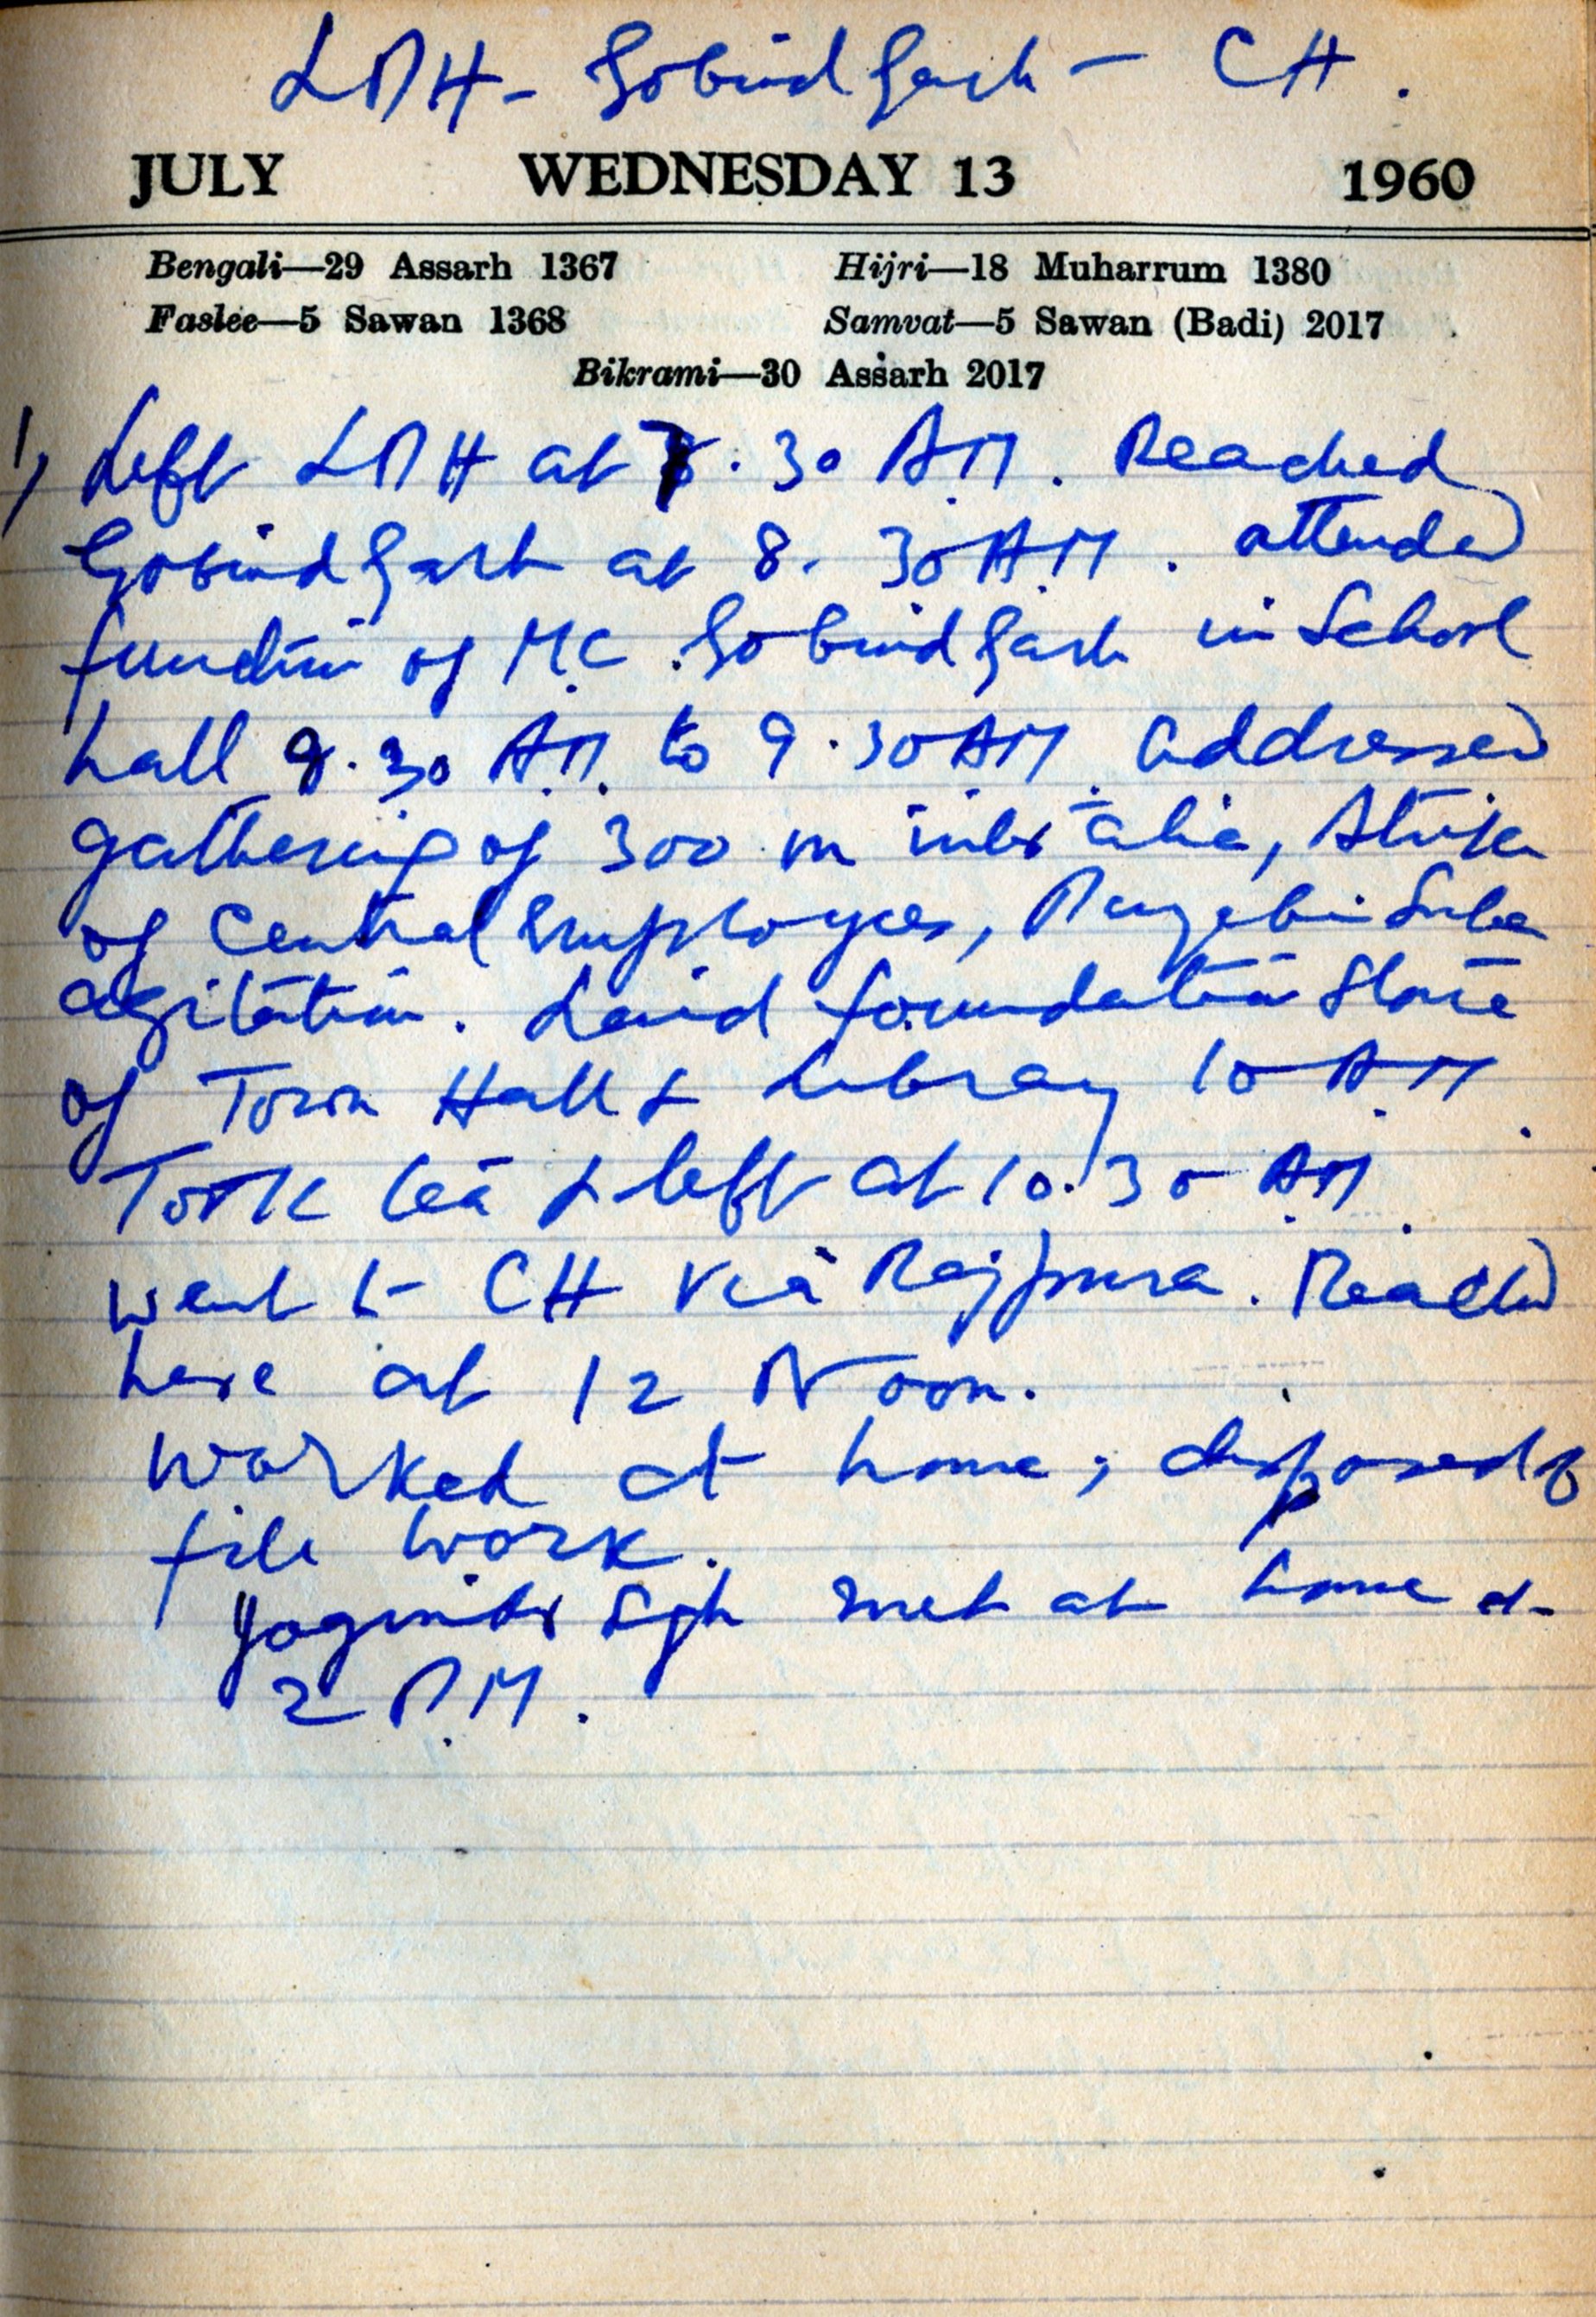 LDH - Gobind Garh - CH.
JULY WEDNESDAY 13 1960
Bengali—29 Assarh 1367 Hijri—18 Muharrum 1380
Faslee—5 Sawan 1368 Samvat—5 Sawan (Badi) 2017
Bikrami—30 Assarh 2017
1) Left LDH at 7.30 A.M. Reached
Gobind Garh at 8.30 A.M. attended
function of M.C. Gobind Garh in School
hall 8.30 A.M. to 9.30 A.M. addressed
gathering of 300 on inter alia, Strike
of Central Employees, Punjabi Suba
agitation. Laid foundation Stone
of Town Hall & Library 10 A.M.
Took tea & left at 10.30 A.M.
went to CH via Rajpura. Reached
here at 12 Noon.
Worked at home; disposed of
file work.
Yoginder Sgh met at home at
2 P.M.